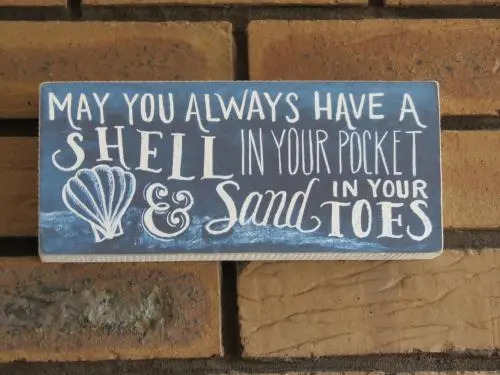 MAY YOU ALWAYS HAVE A
SHELL IN YOUR POCKET
& Sand IN YOUR TOES